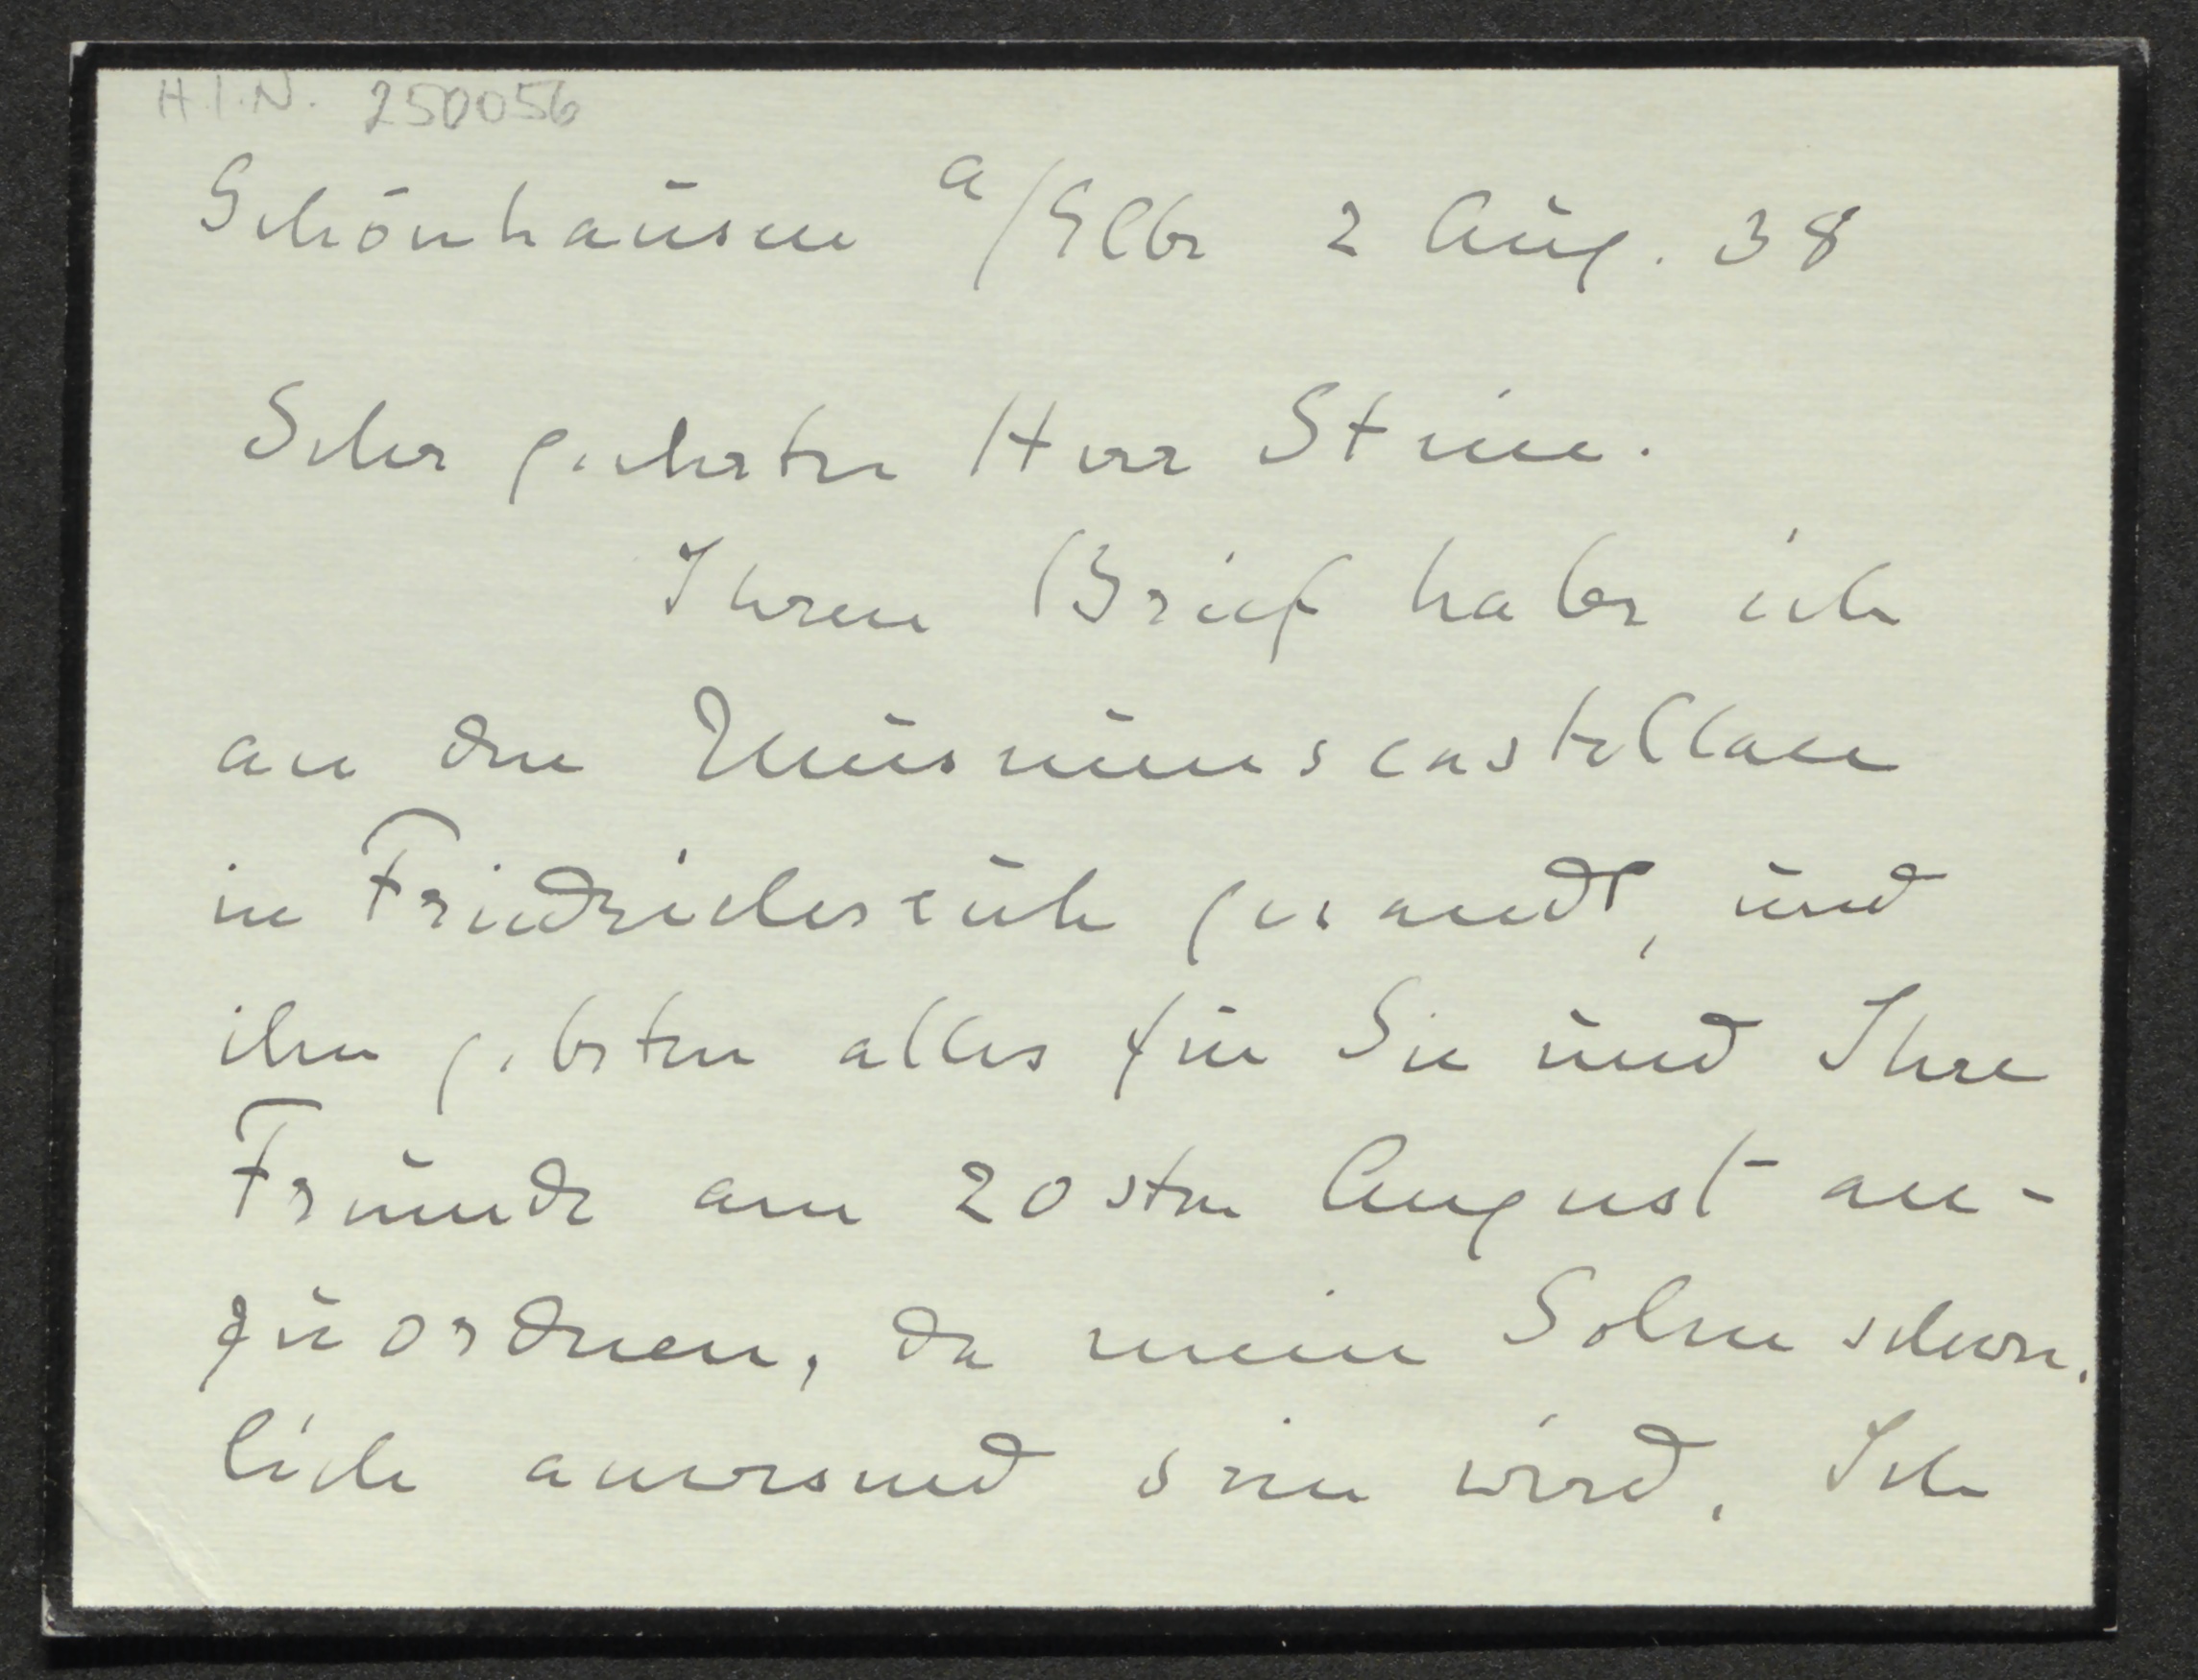 H.I.N. 250056
Schönhausen a/Elbe 2 Aug. 38
Sehr geehrter Herr Stein.
Ihren Brief habe ich
an den Museumscastellan
in Friedrichsruh gesandt, und
ihn gebeten alles für Sie und Ihre
Freunde am 20sten August an-
zuordnen, da mein Sohn schwer-
lich anwesend sein wird. Ich